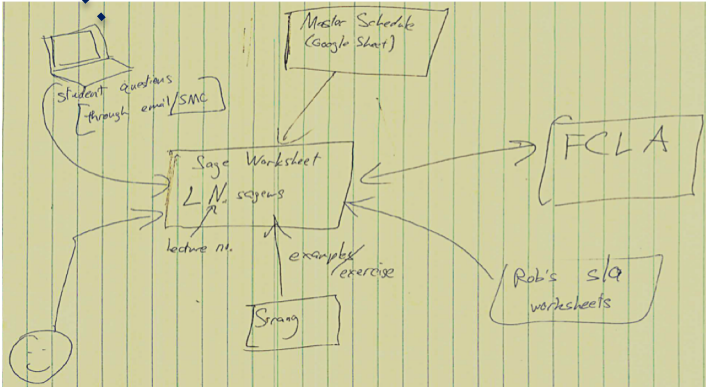 Master Schedule
(Google Sheet)
Student questions
through email/SMC
Sage Worksheet
LN.sagews
lecture no.
FCLA
examples/
exercise
Strang
Rob's sla
worksheets